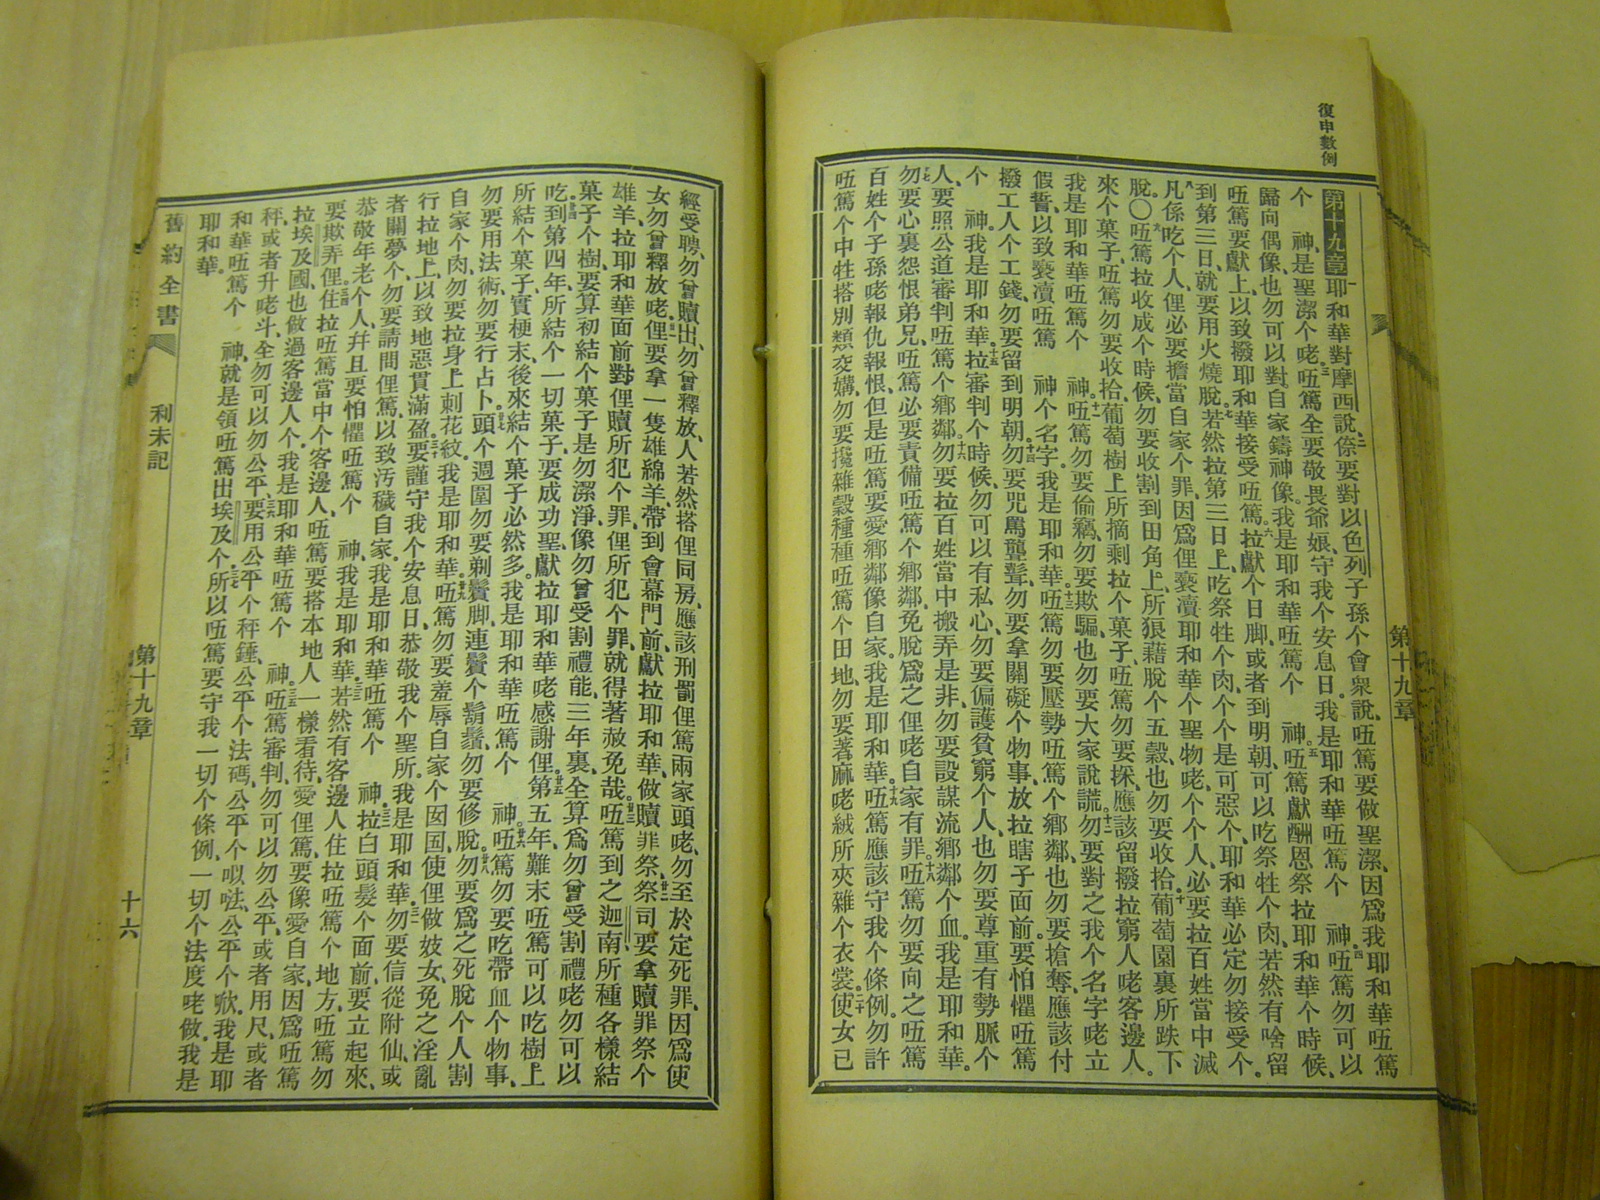 復申數例
第十九章
第十九章 一 耶和華對摩西說、二 㑚要對以色列子孫个會衆說、吪篤要做聖潔、因爲我耶和華吪篤
个 神、是聖潔个咾、三 吪篤全要敬畏爺娘、守我个安息日。我是耶和華吪篤个 神。四 吪篤勿可以
歸向偶像、也勿可以對自家鑄神像。我是耶和華吪篤个 神。五 吪篤獻酬恩祭拉耶和華个時候、
吪篤要獻上、以致撥耶和華接受吪篤。六 拉獻个日脚、或者到明朝、可以吃祭牲个肉、若然有啥留
到第三日、就要用火燒脫。七 若然拉第三日上、吃祭牲个肉、个个是可惡个、耶和華必定勿接受个。
八 凡係吃个人、俚必要擔當自家个罪、因爲俚褻瀆耶和華个聖物咾、个个人、必要拉百姓當中滅
脫。〇九 吪篤拉收成个時候、勿要收割到田角上、所狼藉脫个五穀、也勿要收拾。十 葡萄園裏所跌下
來个菓子、吪篤勿要收拾、葡萄樹上所摘剩拉个菓子、吪篤勿要採、應該留撥拉窮人咾客邊人。
我是耶和華吪篤个 神。十一 吪篤勿要偷竊、勿要欺騙、也勿要大家說謊。十二 勿要對之我个名字咾立
假誓、以致褻瀆吪篤 神个名字。我是耶和華。十三 吪篤勿要壓勢吪篤个鄉鄰、也勿要搶奪、應該付
撥工人个工錢、勿要留到明朝。十四 勿要咒罵聾聱、勿要拿關礙个物事、放拉瞎子面前。要怕懼吪篤
个 神。我是耶和華。十五 拉審判个時候、勿可以有私心、勿要偏護貧窮个人、也勿要尊重有勢脈个
人、要照公道審判吪篤个鄉鄰。十六 勿要拉百姓當中搬弄是非、勿要設謀流鄉鄰个血。我是耶和華。
十七 勿要心裏怨恨弟兄、吪篤必要責備吪篤个鄉鄰、免脫爲之俚咾自家有罪。十八 吪篤勿要向之吪篤
百姓个子孫咾報仇報恨、但是吪篤要愛鄉鄰像自家。我是耶和華。十九 吪篤應該守我个條例。勿許
吪篤个中牲搭別類交媾、勿要攙雜穀種種吪篤个田地、勿要著麻咾絨所夾雜个衣裳。二十 使女已
經受聘、勿曾贖出、勿曾釋放、人若然搭俚同房、應該刑罰俚篤兩家頭咾、勿至於定死罪、因爲使
女勿曾釋放咾。廿一 俚要拿一隻雄綿羊、帶到會幕門前、獻拉耶和華、做贖罪祭。廿二 祭司要拿贖罪祭个
雄羊、拉耶和華面前對俚贖所犯个罪、俚所犯个罪、就得著赦免哉。廿三 吪篤到之迦南、所種各樣結
菓子个樹、要算初結个菓子是勿潔淨、像勿曾受割禮能、三年裏、全算爲勿曾受割禮咾勿可以
吃。廿四 到第四年、所結个一切菓子、要成功聖獻拉耶和華咾感謝俚。廿五 第五年、難末吪篤可以吃樹上
所結个菓子、實梗末、後來結个菓子必然多。我是耶和華吪篤个 神。廿六 吪篤勿要吃帶血个物事、
勿要用法術、勿要行占卜。廿七 頭个週圍勿要剃、鬢脚連鬢个鬍鬚、勿要修脫。廿八 勿要爲之死脫个人割
自家个肉、勿要拉身上刺花紋。我是耶和華。廿九 吪篤勿要羞辱自家个囡囝、使俚做妓女、免之淫亂
行拉地上、以致地惡貫滿盈。三十 要謹守我个安息日、恭敬我个聖所。我是耶和華。三一 勿要信從附仙、或
者關夢个、勿要請問俚篤、以致汚穢自家。我是耶和華吪篤个 神。三二 拉白頭髮个面前、要立起來、
恭敬年老个人、幷且要怕懼吪篤个 神。我是耶和華。三三 若然有客邊人住拉吪篤个地方、吪篤勿
要欺弄俚。三四 住拉吪篤當中个客邊人、吪篤要搭本地人一樣看待、愛俚篤、要像愛自家、因爲吪篤
拉埃及國、也做過客邊人个。我是耶和華吪篤个 神。三五 吪篤審判、勿可以勿公平、或者用尺、或者
秤、或者升咾斗、全勿可以勿公平。三六 要用公平个秤錘、公平个法碼、公平个㕥法、公平个㰸。我是耶
和華吪篤个 神、就是領吪篤出埃及个。三七 所以吪篤要守我一切个條例、一切个法度咾做。我是
耶和華。
舊約全書 利未記 第十九章 十六